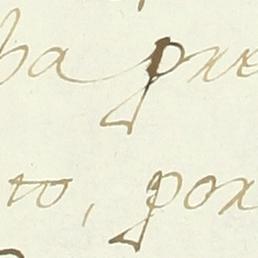 ba pue
to, por